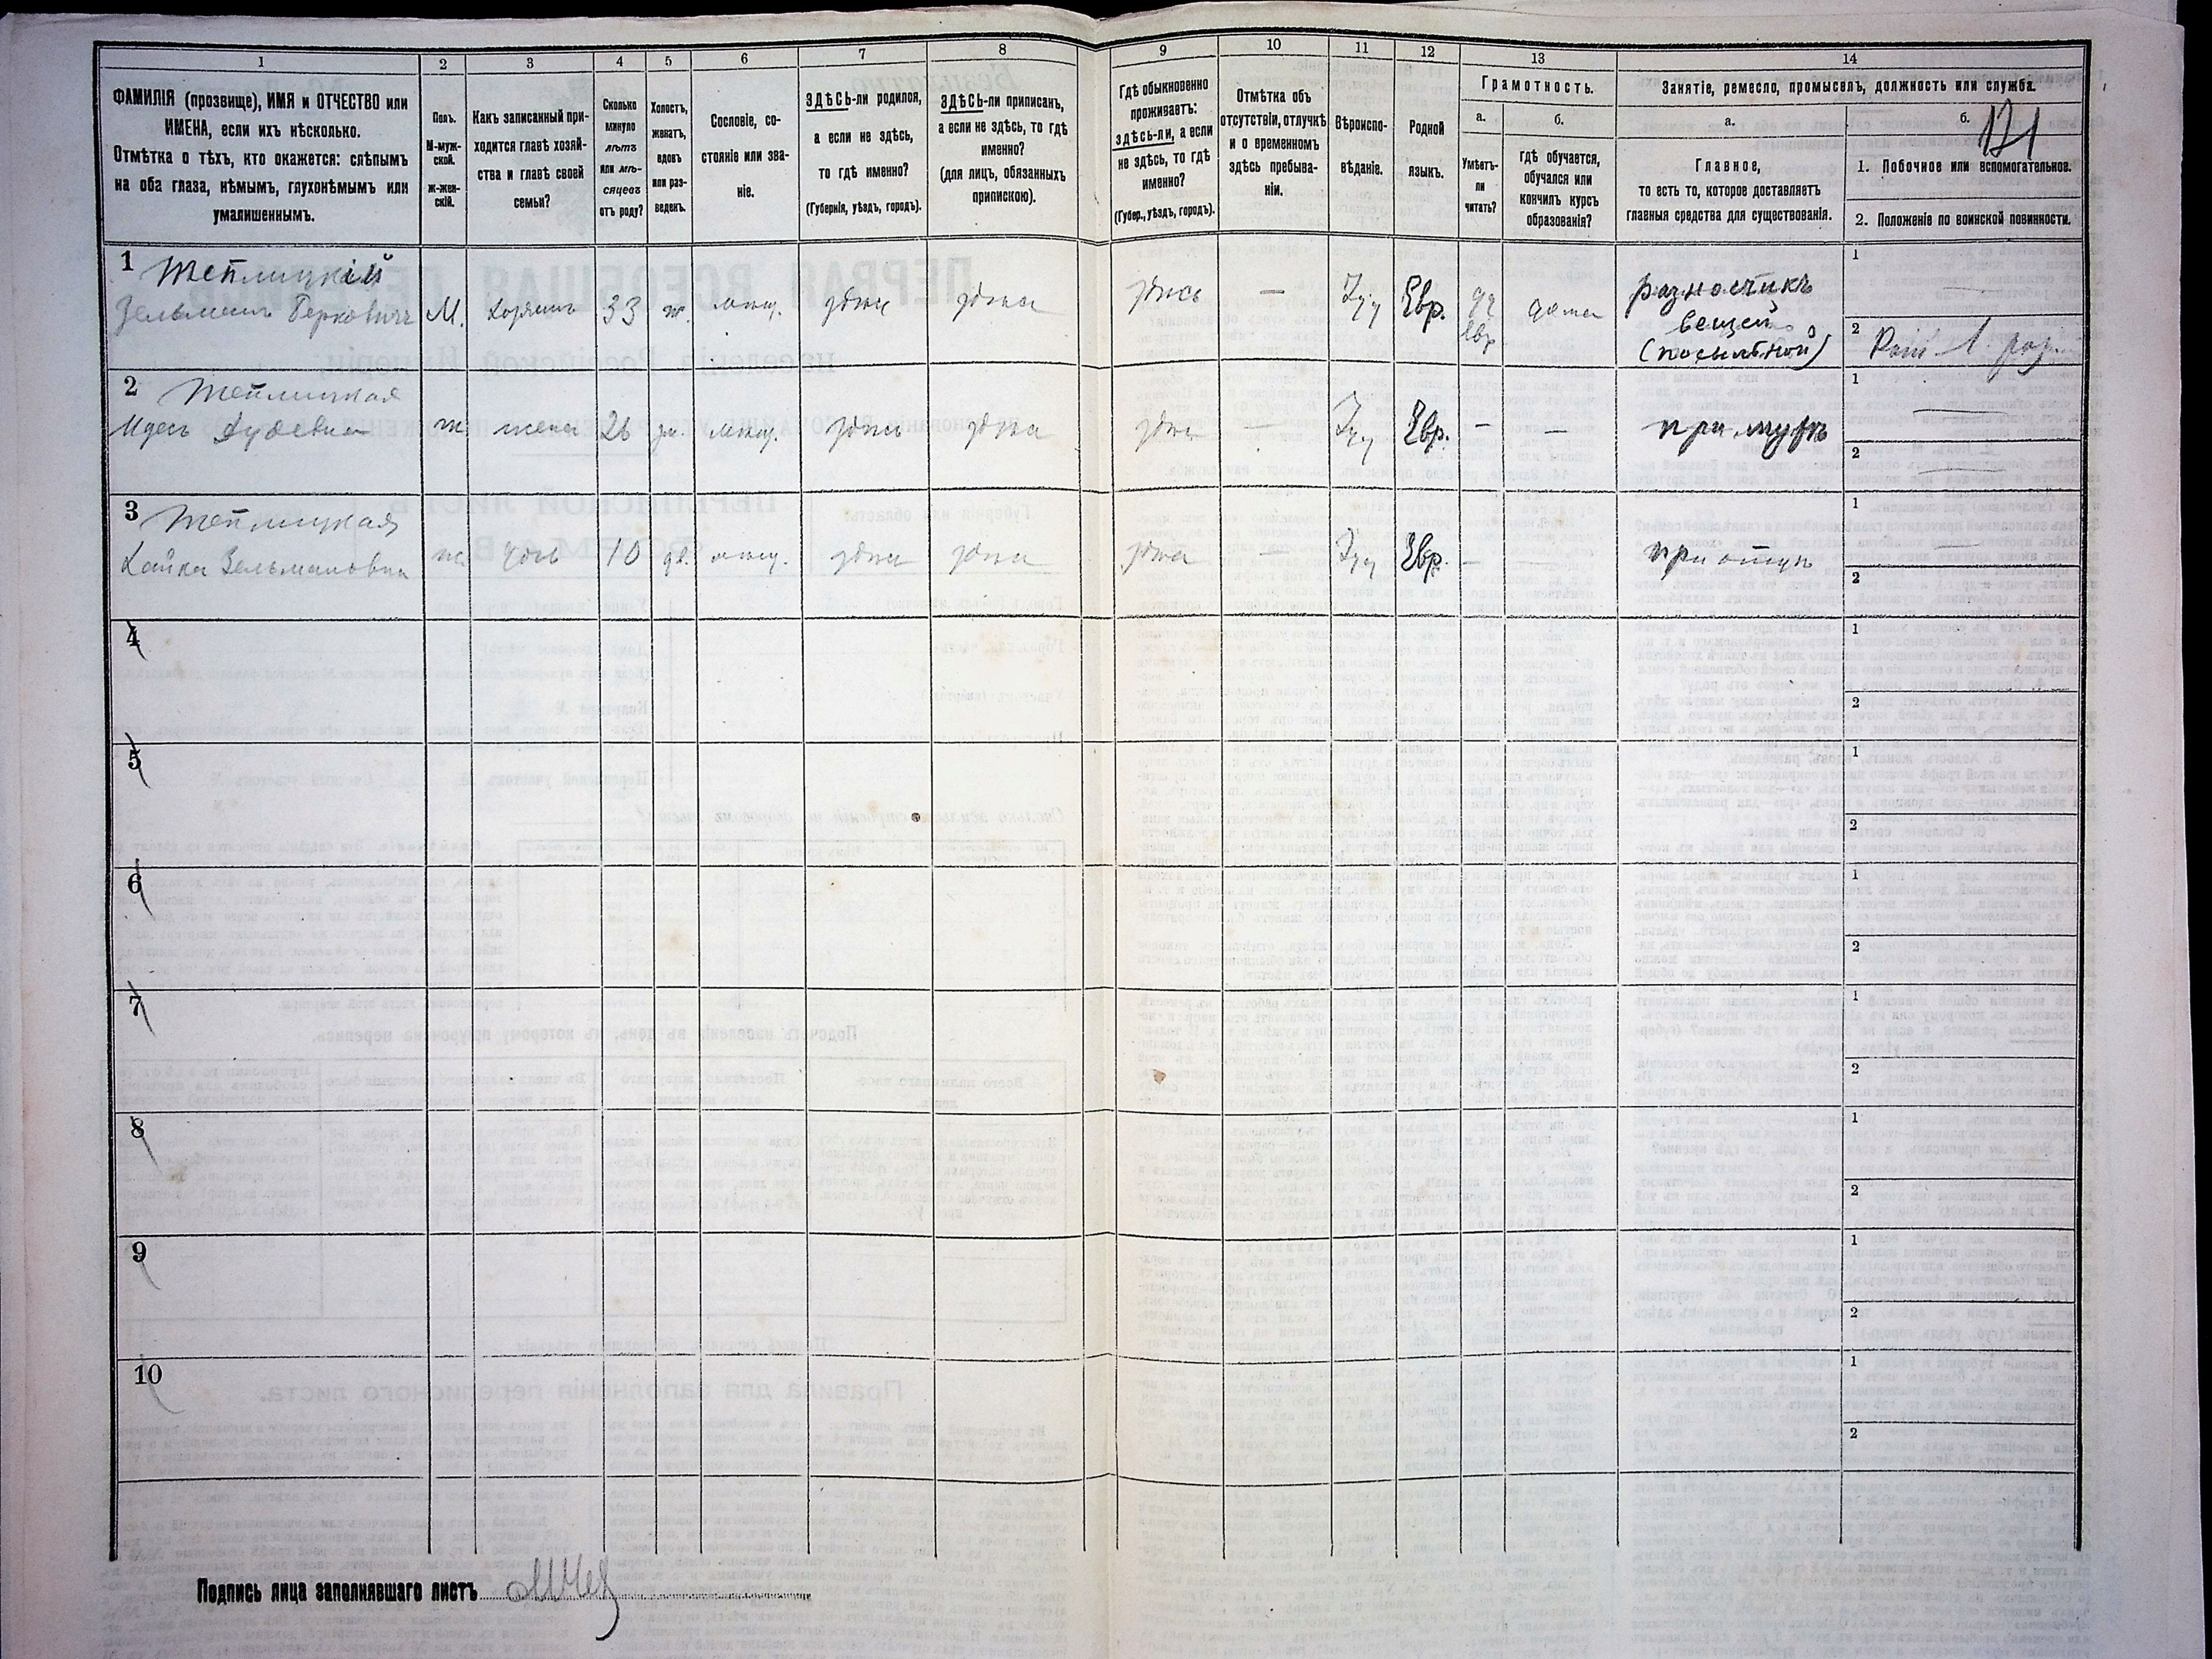 1 2 3 4 5 6 7 8 9 10 11 12 13 14
ФАМИЛІЯ (прозвище), ИМЯ и ОТЧЕСТВО или
ИМЕНА, если ихъ нѣсколько.
Отмѣтка о тѣхъ, кто окажется: слѣпымъ
на оба глаза, нѣмымъ, глухонѣмымъ или
умалишеннымъ.
Полъ.
М-муж-
ской.
ж-жен-
скій.
Какъ записанный при-
ходится главѣ хозяй-
ства и главѣ своей
семьи?
Сколько
минуло
лѣтъ
или мѣ-
сяцевъ
отъ роду?
Холостъ,
женатъ,
вдовъ
или раз-
веденъ.
Сословіе, со-
стояніе или зва-
ніе.
ЗДѢСЬ-ли родился,
а если не здѣсь,
то гдѣ именно?
(Губернія, уѣздъ, городъ).
ЗДѢСЬ-ли приписанъ,
а если не здѣсь, то гдѣ
именно?
(для лицъ, обязанныхъ
припискою).
Гдѣ обыкновенно
проживаетъ:
ЗДѢСЬ-ли, а если
не здѣсь, то гдѣ
именно?
(Губер., уѣздъ, городъ).
Отмѣтка объ
отсутствіи, отлучкѣ
и о временномъ
здѣсь пребыва-
ніи.
Вѣроиспо-
вѣданіе.
Родной
языкъ.
Грамотность.
а.
Умѣетъ-
ли
читать?
б.
гдѣ обучается,
обучался или
кончилъ курсъ
образованія?
Занятіе, ремесло, промыселъ, должность или служба.
а.
Главное,
то есть то, которое доставляетъ
главныя средства для существованія.
б.
121
1. Побочное или вспомогательное.
2. Положеніе по воинской повинности.
1 Теплицкій
Зельманъ Берковичъ М. хозяинъ 33 ж. мѣщ. здѣсь здѣсь здѣсь — Іуд Евр. да евр дома
разносчикъ
вещей
(посыльной)
1 —
2
2 Теплицкая
Идесь Дудевна ж. жена 26 зм. мѣщ. здѣсь здѣсь здѣсь — Іуд Евр. — — при мужѣ
1 —
2 —
3 Теплицкая
Хайка Зельмановна ж. дочь 10 дв. мѣщ. здѣсь здѣсь здѣсь — Іуд Евр. — — при отцѣ
1 —
2
4 1
2
5 1
2
6 1
2
7 1
2
8 1
2
9 1
2
10 1
2
Подпись лица заполнявшаго листъ